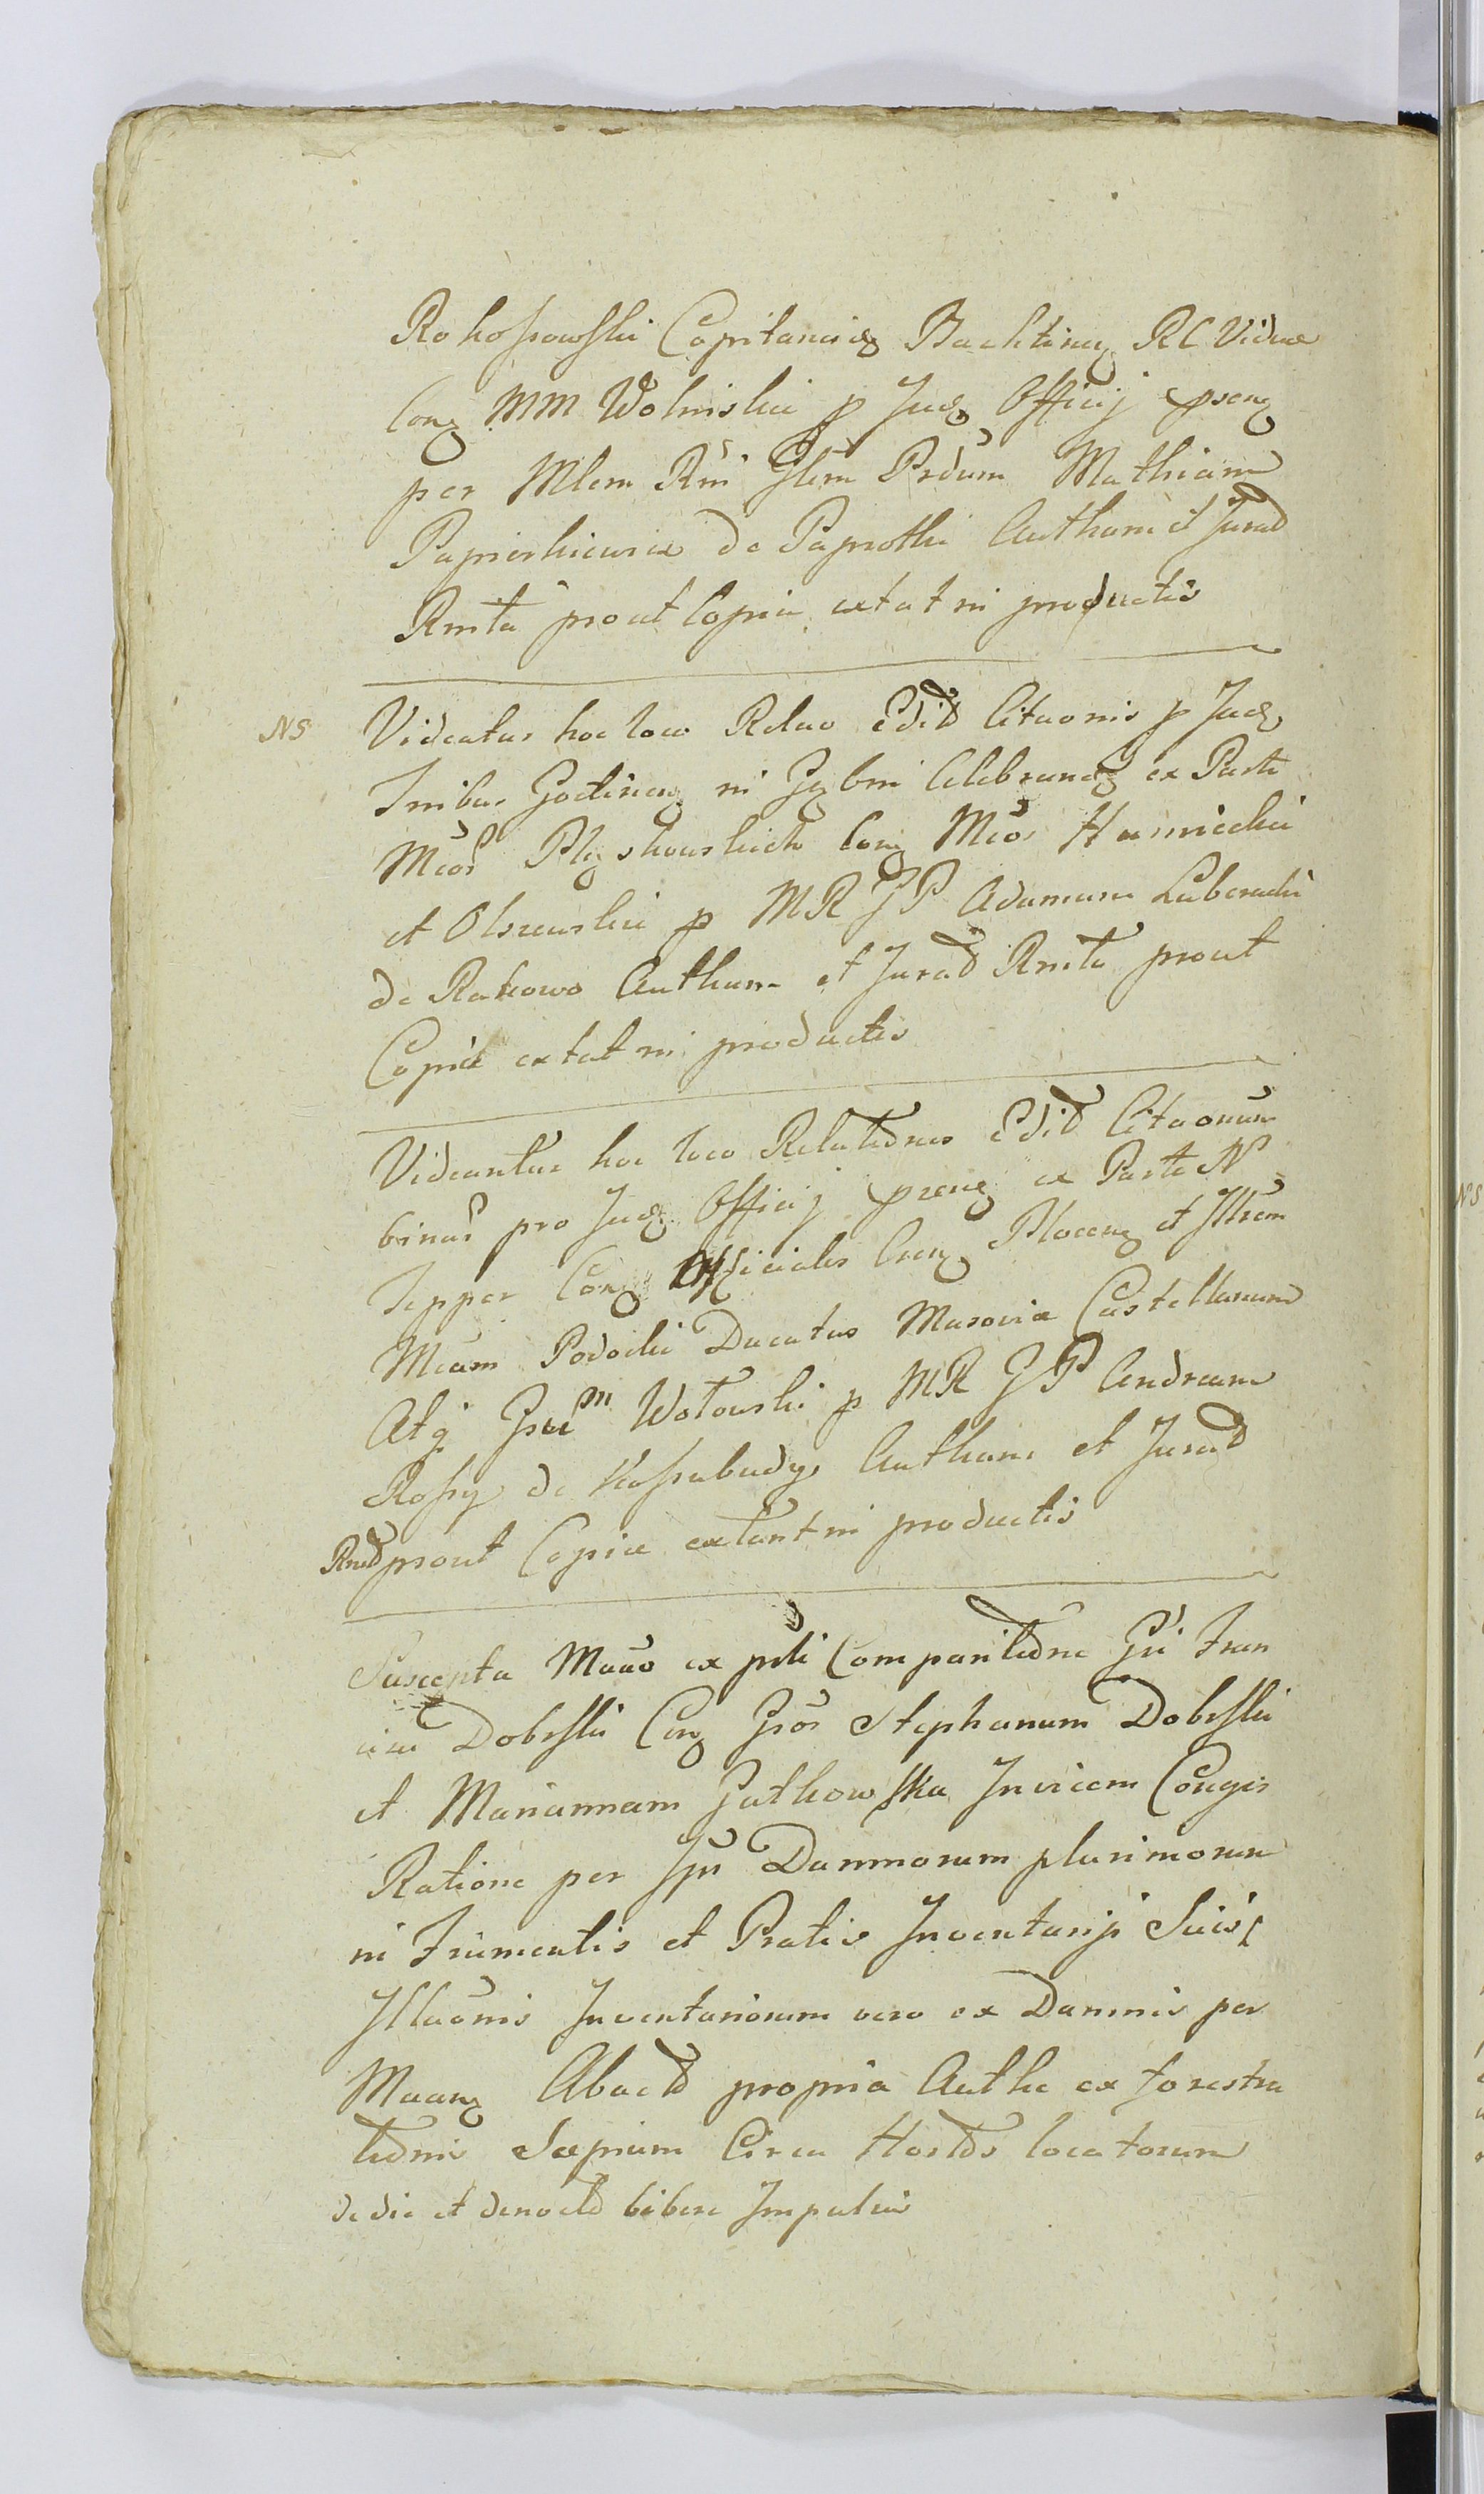 Rokossowski Capitaneig Bachtineg RC Viduæ
Cong MM Wolinski p Judg Officij pseng
per Mlem Rni Glem Prdum Mathiam
Papierkiewicz de Paprotki Authum et Jurad
Rnita prout Copia extat in productis
NS Videatur hoc loco Relao Edid Citaonis p Judg
in Gybni Celebrand ex Parte
Mcor Plyskowskich Cong Mcos Humiecki
et Olszewski p MR GP Adamum Luberacki
de Rakowo Authum et Jurad Rnita prout
Copia extat in productis
Videantur hoc loco Relationes Edid Citaonum
binar pro Judg Officij pseng ex Parte N
Tepper Cong Officiales Cseng Ploceng et Illrem
Mcum Podocki Ducatus Masoviæ Castellanum
Atq Gsum Wołowski p MR GP Andream
Rossy de Kossobudy Authum et Jurad
Rnad prout Copiæ extant in productis
Suscepta Mauo ex prti Comparitione Gsi Fran
Dobrski Cong Gsos Stephanum Dobrski
et Mariannam Gutkowska Invicem Conges
Ratione per Ipn Damnorum plurimorum
in Frumentis et Pratis Inventarijs Suis
Illaonis Inventariorum vero ex Damnis per
Muang Abactd propria Authe ex forestra
tionis Sepium Circa Hortos locatorum
de die et denoctd bibere Impulsii